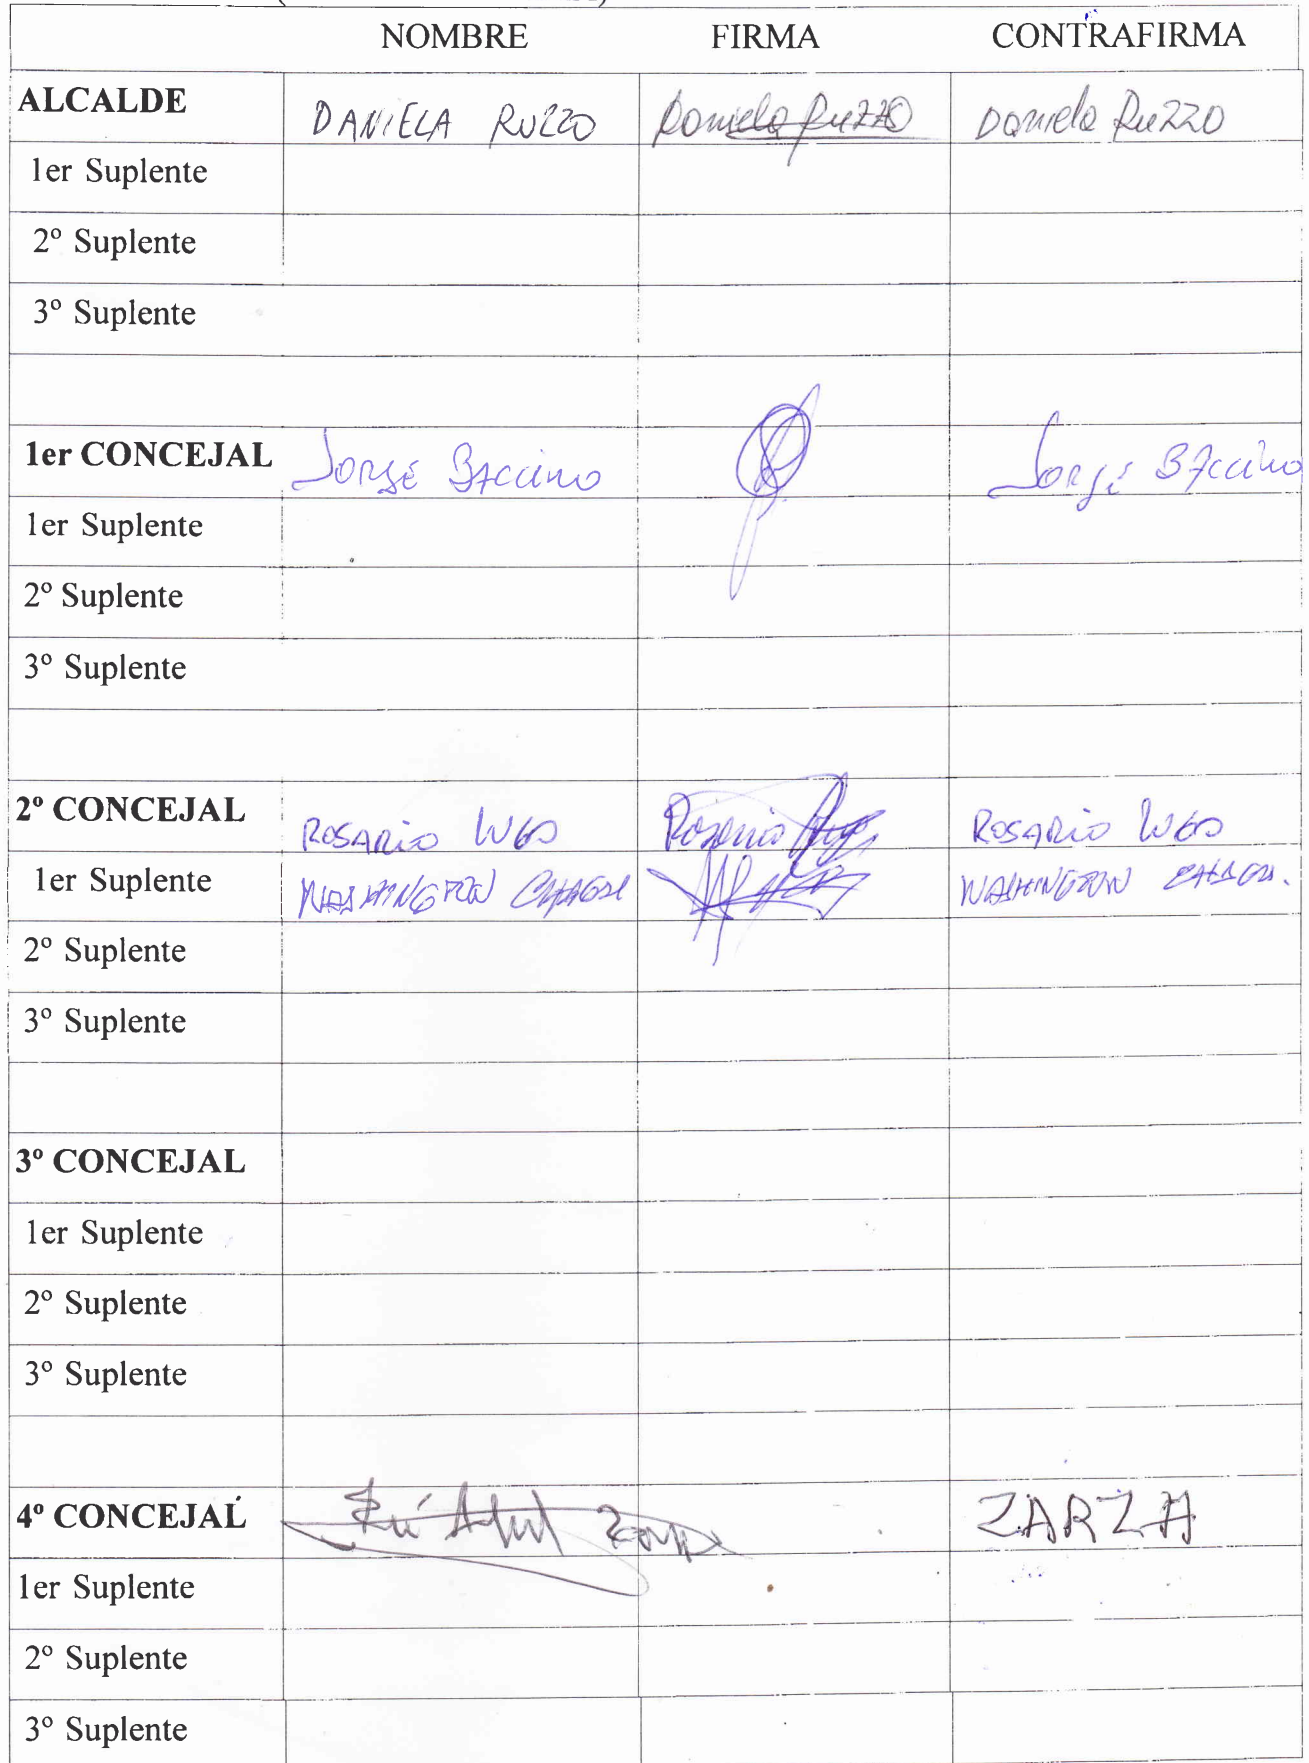 NOMBRE FIRMA CONTRAFIRMA
ALCALDE DANIELA RUZZO Daniela Ruzzo Daniela Ruzzo
1er Suplente
2º Suplente
3º Suplente
1er CONCEJAL Jorge Baccino Jorge Baccino
1er Suplente
2º Suplente
3º Suplente
2º CONCEJAL ROSARIO LUGO Rosario Lugo ROSARIO LUGO
1er Suplente WASHINGTON WASHINGTON
2º Suplente
3º Suplente
3º CONCEJAL
1er Suplente
2º Suplente
3º Suplente
4º CONCEJAL ZARZA
1er Suplente
2º Suplente
3º Suplente